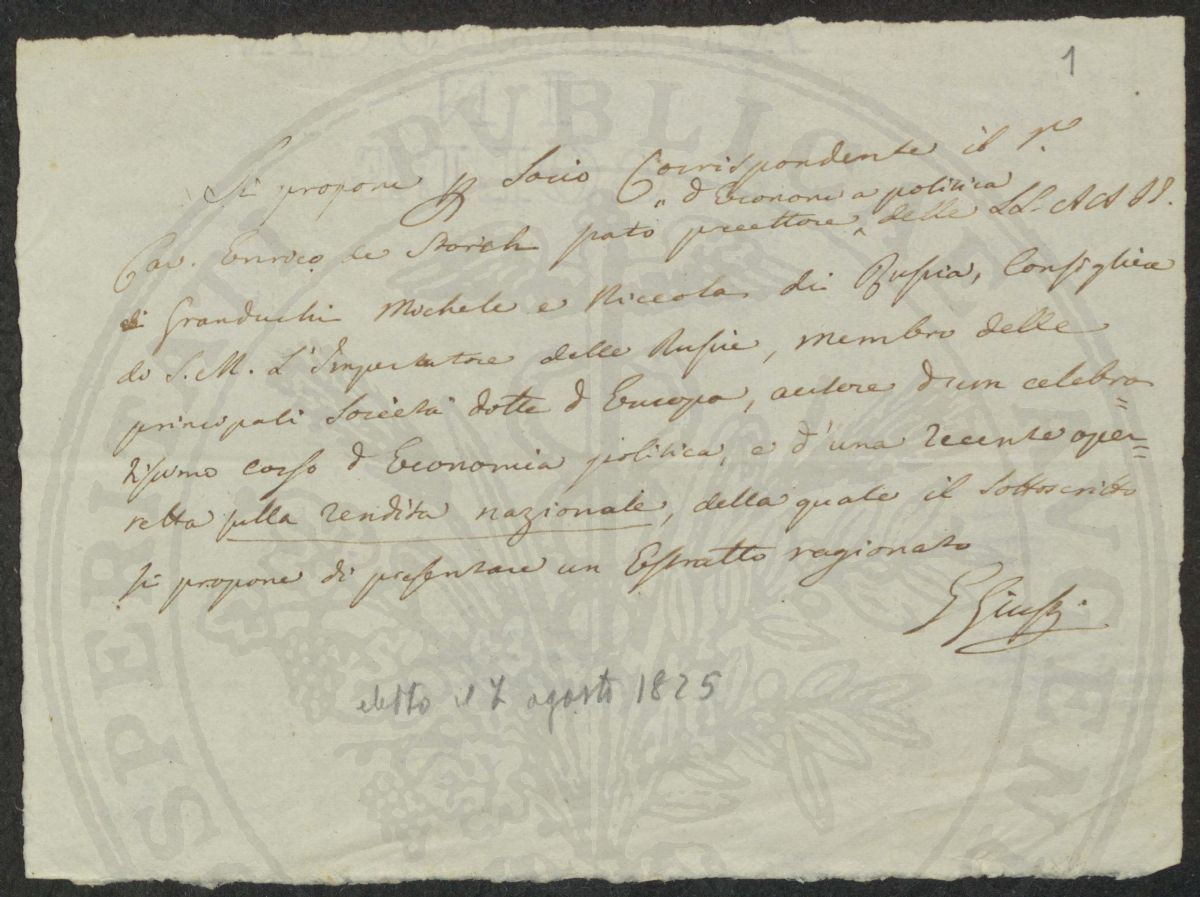 1
Si propone per Socio Corrispondente il Sr.
" d'Economia politica
Cav. Enrico de Storch stato precettore ^ delle LL. AA. II.
di Granduchi Michele e Niccola di Russia, Consigliere
di S. M. L'Imperatore delle Russie, membro delle
principali Società dotte d'Europa, autore d'un celebra=
tissimo corso d'Economia politica, e d'una recente oper=
retta sulla rendita nazionale, della quale il sottoscritto
si propone di presentare un Estratto ragionato
G Giusti
eletto il 7 agosto 1825
PROSPERITATI PUBLICAE AUGENDAE